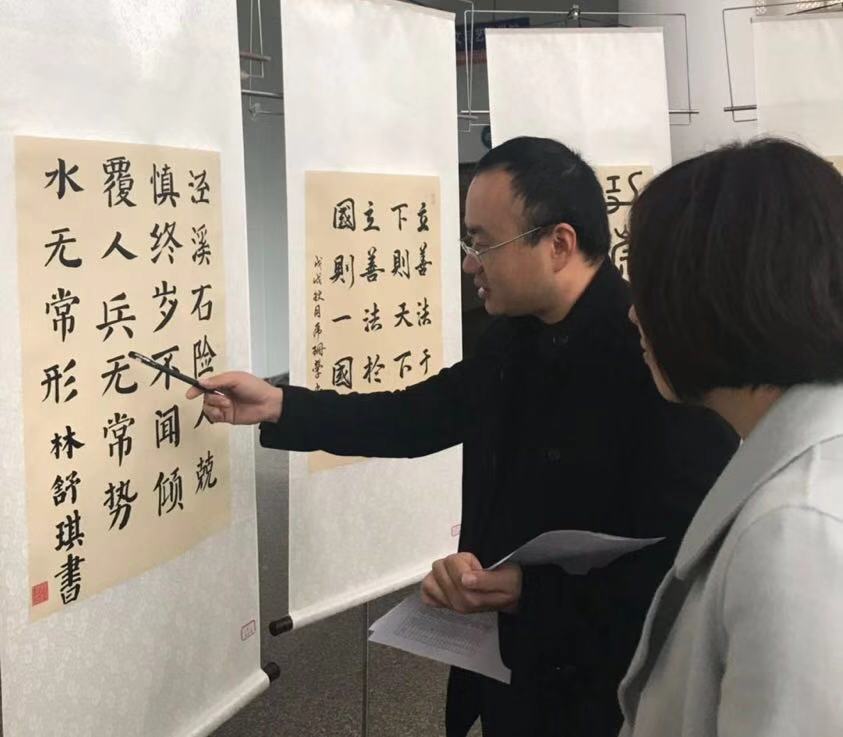 泾溪石险人兢
慎终岁不闻倾
覆人兵无常势
水无常形
林舒琪書
立善法于
下則天下
立善法於
國則一國
戊戌秋月